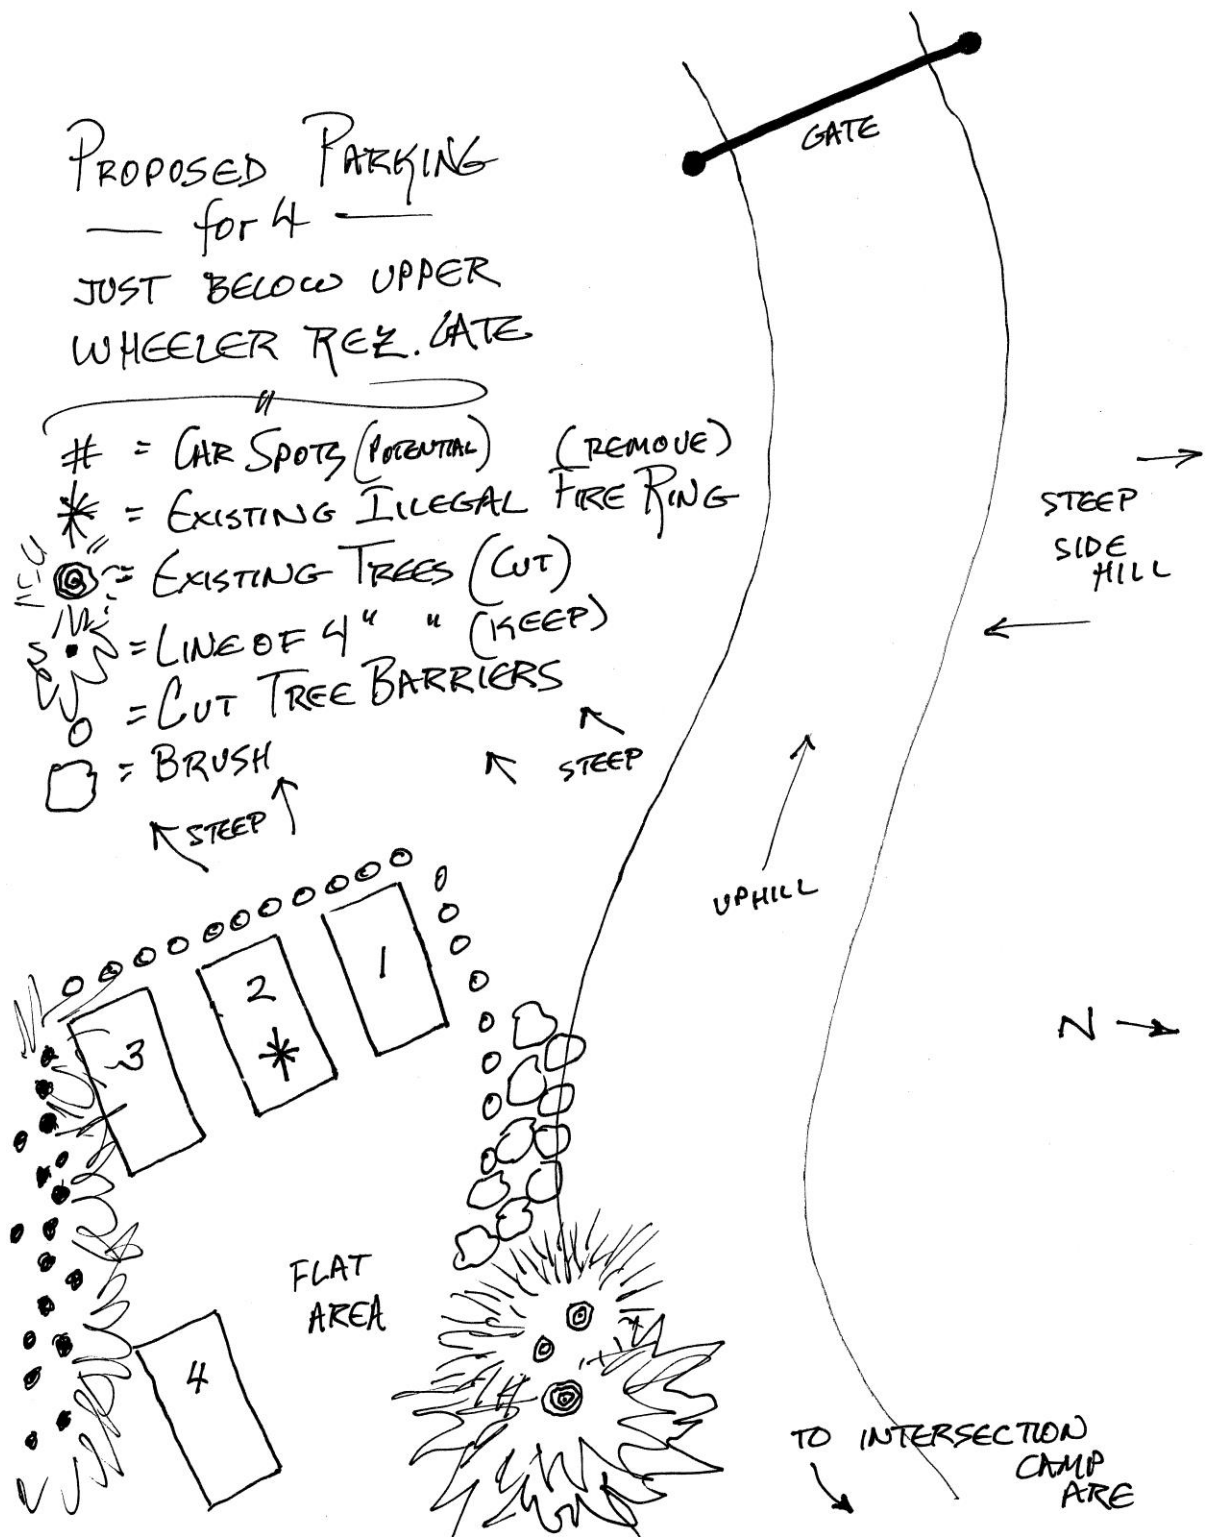 PROPOSED PARKING
— for 4 —
JUST BELOW UPPER
WHEELER REZ. GATE
# = CAR SPOTS (POTENTIAL) (REMOVE)
* = EXISTING ILLEGAL FIRE RING
= EXISTING TREES (CUT)
= LINE OF 4" " (KEEP)
= CUT TREE BARRIERS
= BRUSH
GATE
STEEP
SIDE
HILL
STEEP
STEEP
UPHILL
N
1
2
*
3
FLAT
AREA
4
TO INTERSECTION
CAMP
ARE